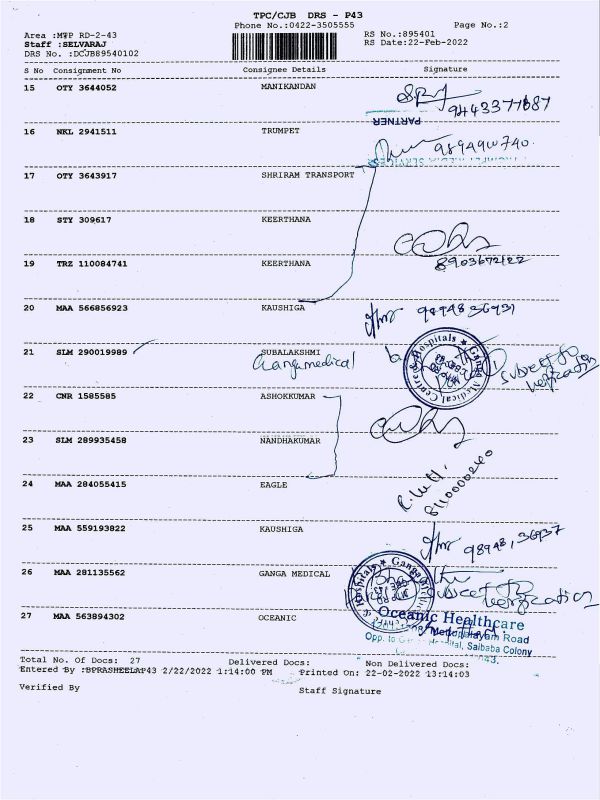 TPC/CJB DRS - P43
Phone No.:0422-3505555 Page No.:2
Area :MTP RD-2-43 RS No.:895401
Staff :SELVARAJ RS Date:22-Feb-2022
DRS No. :DCJB89540102
S No Consignment No Consignee Details Signature
15 OTY 3644052 MANIKANDAN
9443377687
PARTNER
16 NKL 2941511 TRUMPET
17 OTY 3643917 SHRIRAM TRANSPORT
18 STY 309617 KEERTHANA
19 TRZ 110084741 KEERTHANA
8903672122
20 MAA 566856923 KAUSHIGA
98948 36931
21 SLM 290019989 SUBALAKSHMI
Gangamedical
Ganga Medical Centre & Hospitals
Subject to
Verification
22 CNR 1585585 ASHOKKUMAR
23 SLM 289935458 NANDHAKUMAR
24 MAA 284055415 EAGLE
25 MAA 559193822 KAUSHIGA
98948, 36937
26 MAA 281135562 GANGA MEDICAL
Subject to
Verification
27 MAA 563894302 OCEANIC
Oceanic Healthcare
Mettupalayam Road
Opp. to Hospital, Saibaba Colony
Total No. Of Docs: 27 Delivered Docs: Non Delivered Docs:
Entered By :BPRASHEELAP43 2/22/2022 1:14:00 PM Printed On: 22-02-2022 13:14:03
Verified By Staff Signature